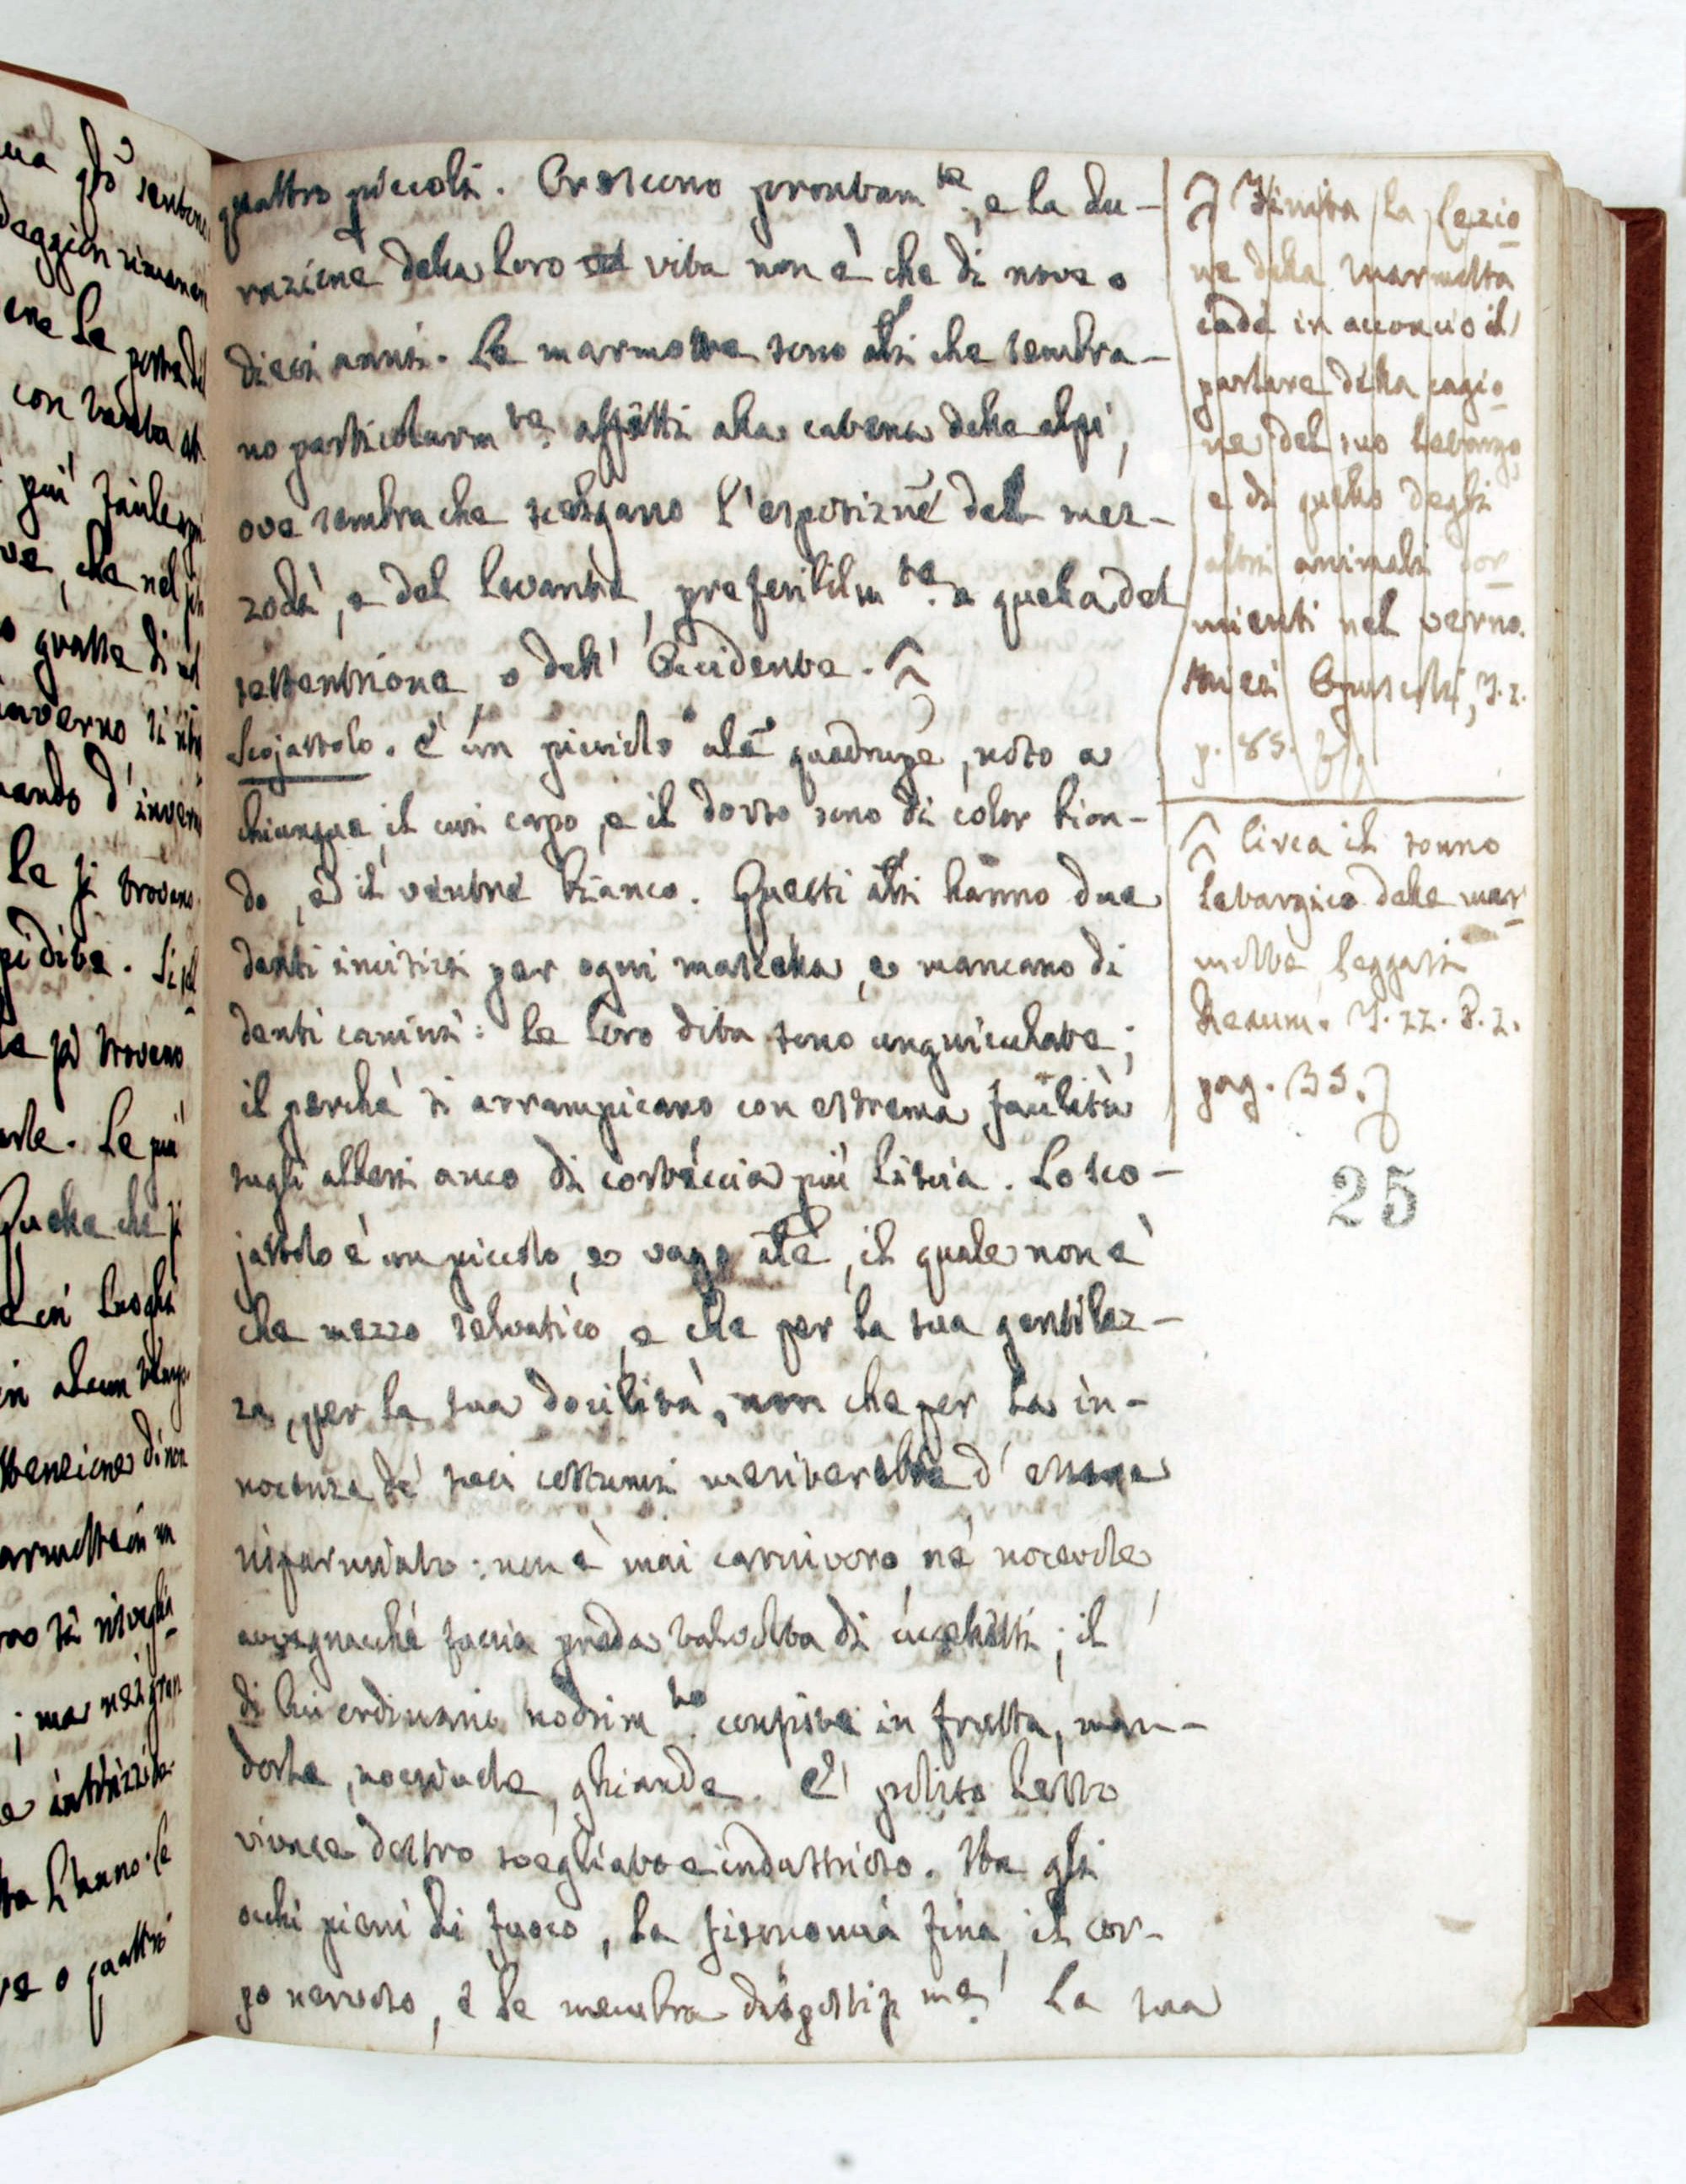 quattro piccoli. Crescono prontam.te, e la du-
razione della loro vita non è che di nove o
dieci anni. Le marmotte sono alī che sembra-
no particolarm.te affetti alla catena delle alpi,
ove sembra che scelgano l'esposizne del mez-
zodì, e del levante, preferibilm.te a quella del
settentrione, o dell' Occidente.
Scojattolo. È un piccolo alē quadrupe, noto a
chiunque, il cui capo, e il dorso sono di color bion-
do, ed il ventre bianco. Questi alī hanno due
denti incisivi per ogni mascella, e mancano di
denti canini: le loro dita sono unguiculate;
il perchè si arrampicano con estrema facilità
sugli alberi anco di corteccia più liscia. Lo sco-
jattolo è un piccolo, e vago alē, il quale non è
che mezzo selvatico, e che per la sua gentilez-
za, per la sua docilità, non che per la in-
nocenza de' suoi costumi meriterebbe d' essere
risparmiato: non è mai carnivoro, nè nocevole,
avvegnacchè faccia preda talvolta di uccelletti; il
di lui ordinario nodrim.to consiste in frutta, man-
dorle, nocciuole, ghiande. È polito lesto
vivace destro svegliato e industrioso. Ha gli
occhi pieni di fuoco, la fisonomia fina, il cor-
po nervoso, e le membra dispostiss.me. La sua
Finita la lezio
ne della marmotta
cade in acconcio il
parlare della cagio
ne del suo letargo,
e di quello degli
altri animali dor
mienti nel verno.
Miei Opuscoli, T. 2.
p. 85.
Circa il sonno
letargico delle mar
motte leggasi
Reaum. T. 22. P. 2.
pag. 35.
25